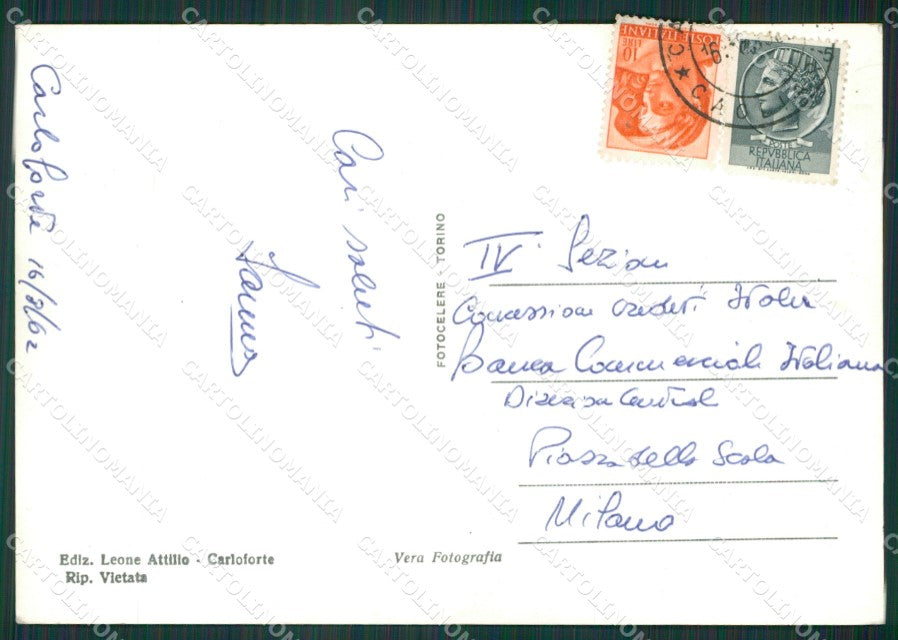 Carloforte 16/8/62
Cari saluti
FOTOCELERE - TORINO
LIRE 10
POSTE ITALIANE
CAGL
POSTE
REPVBBLICA
ITALIANA
IV Sezione
Concessioni crediti Italia
Banca Commerciale Italiana
Direzione Centrale
Piazza della Scala
Milano
Ediz. Leone Attilio - Carloforte
Rip. Vietata
Vera Fotografia
CARTOLINOMANIA